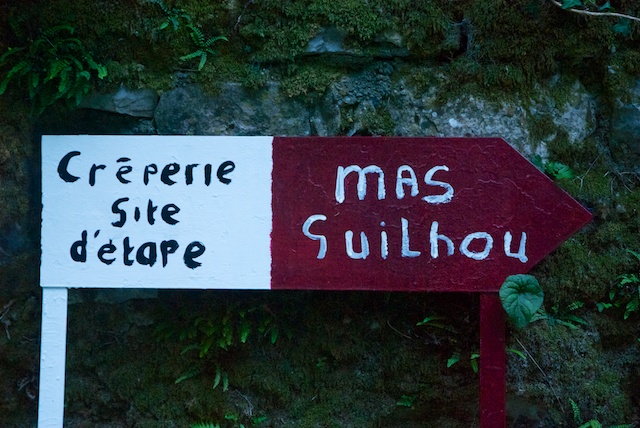 Crêperie
Site
d'étape
MAS
Guilhou